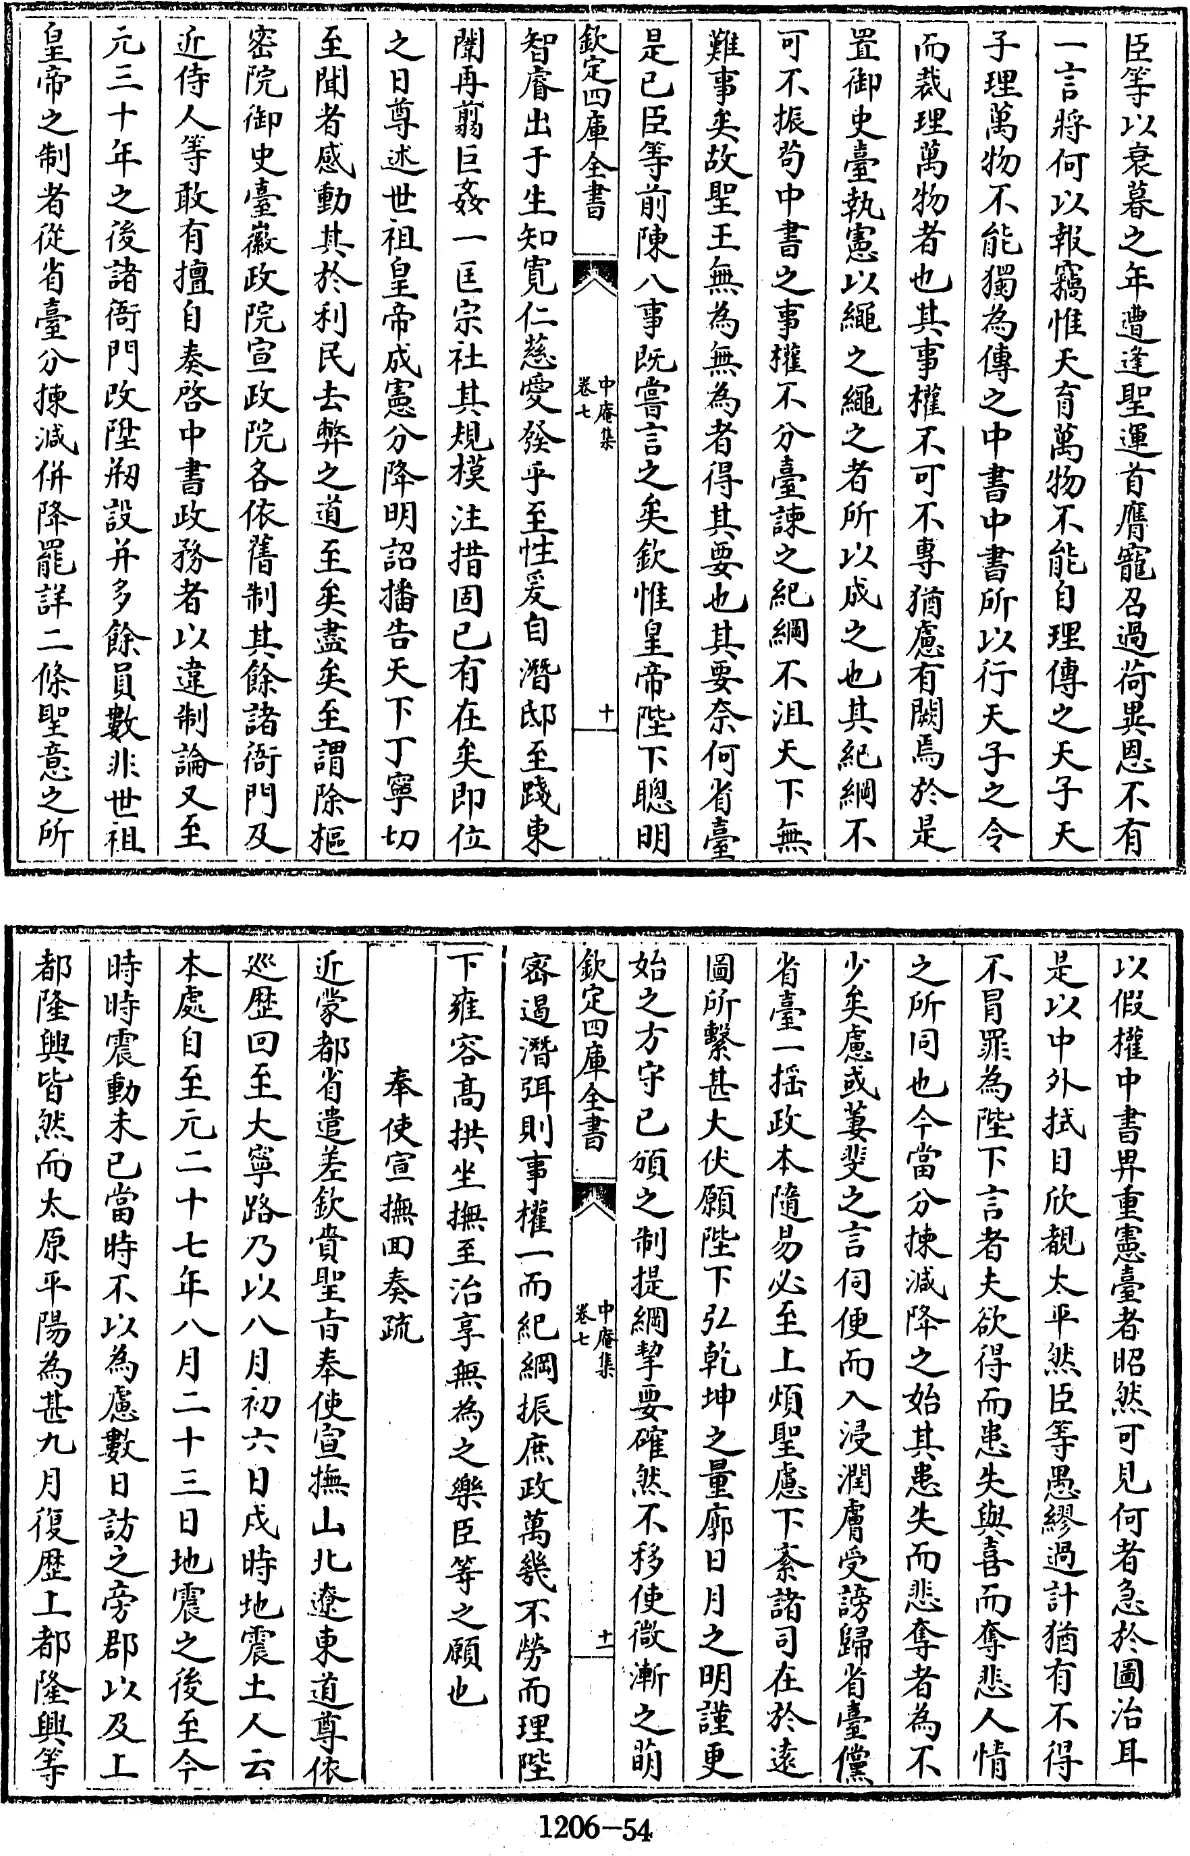 臣等以衰暮之年遭逢聖運首膺寵召過荷異恩不有
一言將何以報竊惟天育萬物不能自理傳之天子天
子理萬物不能獨為傳之中書中書所以行天子之令
而裁理萬物者也其事權不可不專猶慮有闕焉於是
置御史臺執憲以繩之繩之者所以成之也其紀綱不
可不振茍中書之事權不分臺諫之紀綱不沮天下無
難事矣故聖王無為無為者得其要也其要奈何省臺
是已臣等前陳八事既嘗言之矣欽惟皇帝陛下聰明
欽定四庫全書
中庵集
卷七
十
智睿出于生知寬仁慈愛發乎至性爰自潛邸至踐東
闈再翦巨姦一匡宗社其規模注措固已有在矣即位
之日尊述世祖皇帝成憲分降明詔播告天下丁寧切
至聞者感動其於利民去弊之道至矣盡矣至謂除樞
密院御史臺徽政院宣政院各依舊制其餘諸衙門及
近侍人等敢有擅自奏啓中書政務者以違制論又至
元三十年之後諸衙門改陞剏設并多餘員數非世祖
皇帝之制者從省臺分揀減併降罷詳二條聖意之所
以假權中書畀重憲臺者昭然可見何者急於圖治耳
是以中外拭目欣覩太平然臣等愚繆過計猶有不得
不冒罪為陛下言者夫欲得而患失與喜而奪悲人情
之所同也今當分揀減降之始其患失而悲奪者為不
少矣慮或萋斐之言伺便而入浸潤膚受謗歸省臺儻
省臺一揺政本隨易必至上煩聖慮下紊諸司在於遠
圖所繫甚大伏願陛下弘乾坤之量廓日月之明謹更
始之方守已頒之制提綱挈要確然不移使微漸之萌
欽定四庫全書
中庵集
卷七
十一
密遏潛弭則事權一而紀綱振庶政萬幾不勞而理陛
下雍容高拱坐撫至治享無為之樂臣等之願也
奉使宣撫回奏疏
近蒙都省遣差欽賫聖旨奉使宣撫山北遼東道尊依
巡歴回至大寧路乃以八月初六日戌時地震土人云
本處自至元二十七年八月二十三日地震之後至今
時時震動未已當時不以為慮數日訪之旁郡以及上
都隆興皆然而太原平陽為甚九月復歴上都隆興等
1206-54